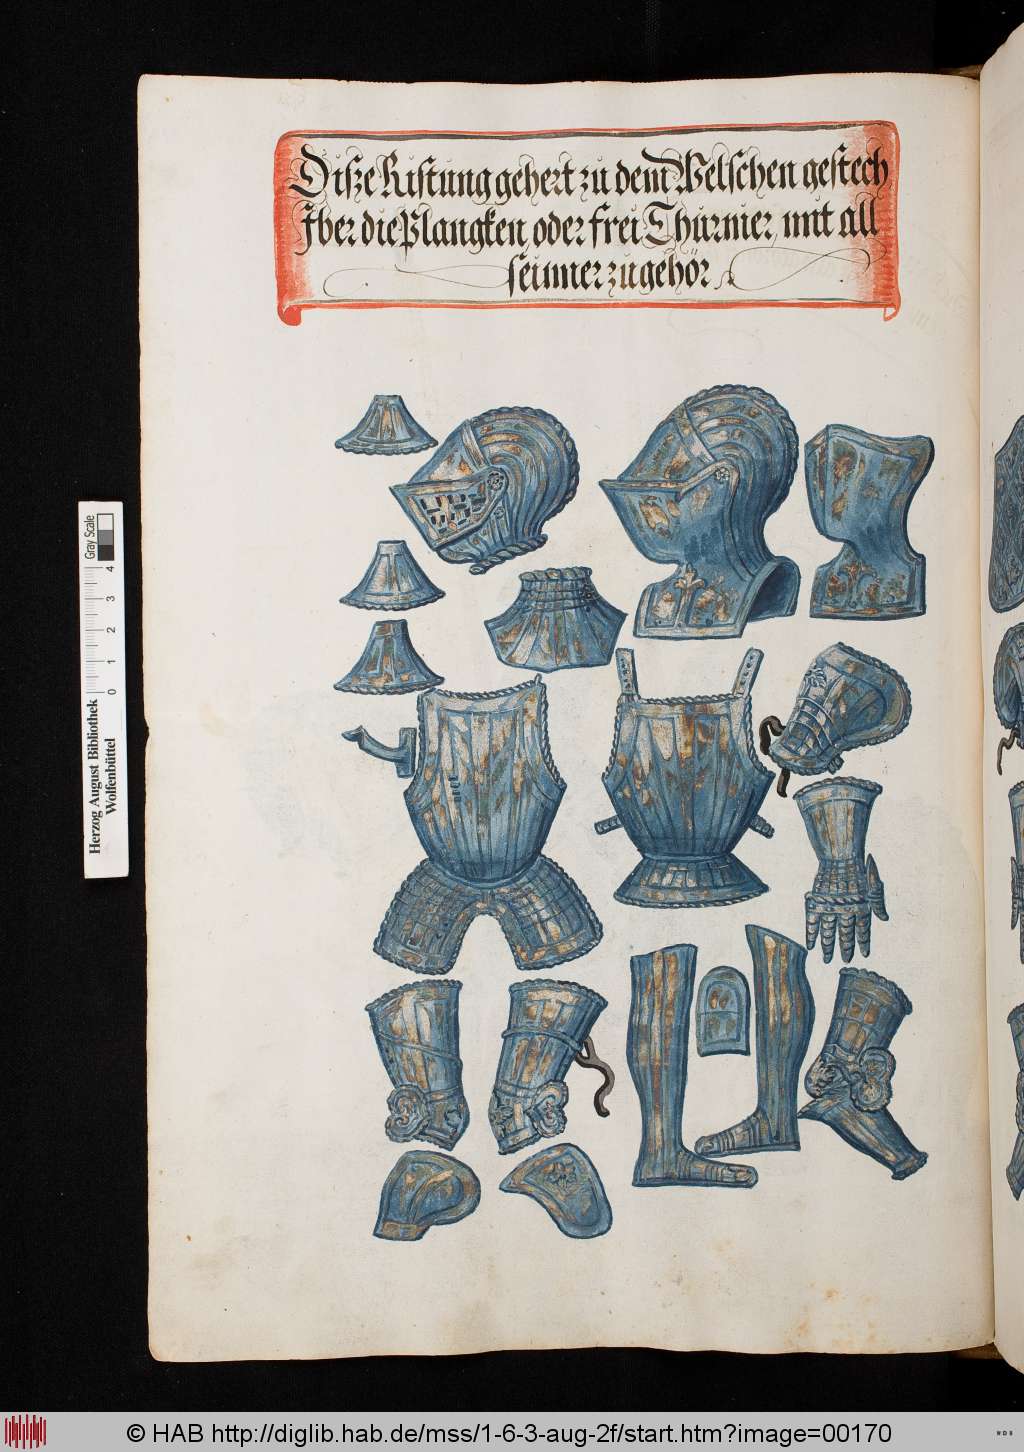 Disze Ristung gehert zu dem Welschen gestech
Jber die Plangken, oder frei Thurnier, mit all
seinner zugehör
Gray Scale
0 1 2 3 4
Herzog August Bibliothek
Wolfenbüttel
© HAB http://diglib.hab.de/mss/1-6-3-aug-2f/start.htm?image=00170
WDB